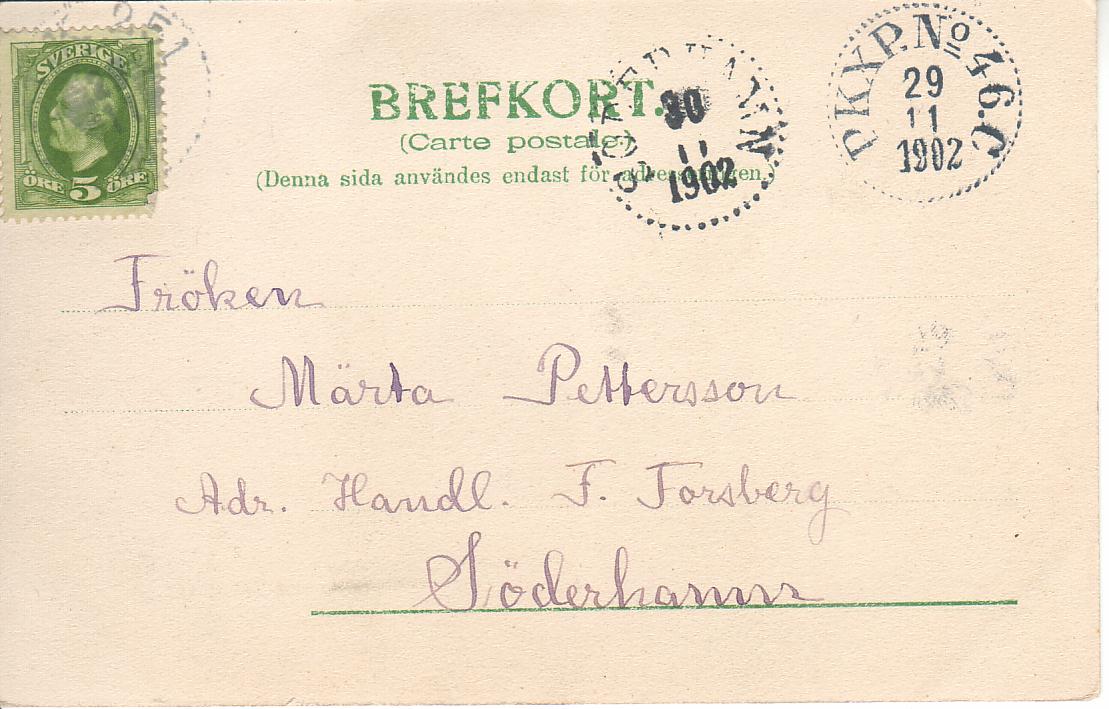 251
SVERIGE
ÖRE 5 ÖRE
BREFKORT.
(Carte postale.)
(Denna sida användes endast för adresseringen.)
SÖDERHAMN
30
11
1902
PKXP. No 46.C
29
11
1902
Fröken
Märta Pettersson
Adr. Handl. F. Forsberg
Söderhamn